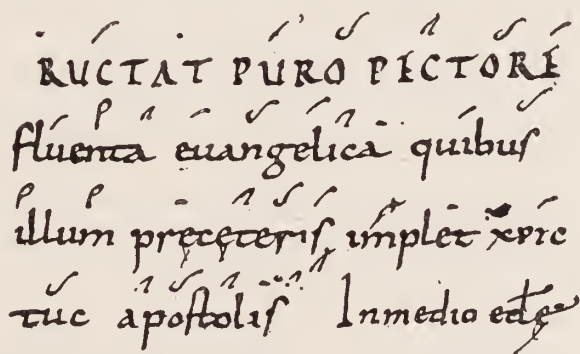 RUCTAT PURO PECTORE
fluenta euangelica quibus
illum pręcęteris implet xpic
tuc apostolis Inmedio ecłę